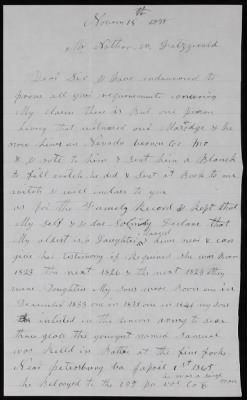 Novem 15th 1881
Mr Nathan W. Fitzgerald
Dear Sir I have endeavored to
prove all your requirements concerning
My claim there is But one person
living that witnessed our Maridge & he
now lives in Nevada vernon Co Mo
& I wrote to him & sent him a Blanch
to fill which he did & sent it Back to me
and I will inclose to you
as for the Family Record I kept that
My self & I do Solindly Declare that
My oldest is a Daughter & living & can
give her testimony if Required she was Born
1823 the next 1826 & the next 1828 they
were Daughters My sons was Born one in
December 1833 one in 1838 one in 1841 my sons
inlisted in the union army to serve
three years the youngest named Samuel
was Killd in Battle at the five forks
Near petersburg va April 1st 1865
he was a single man
he Belonged to the 198 pa vol Co B